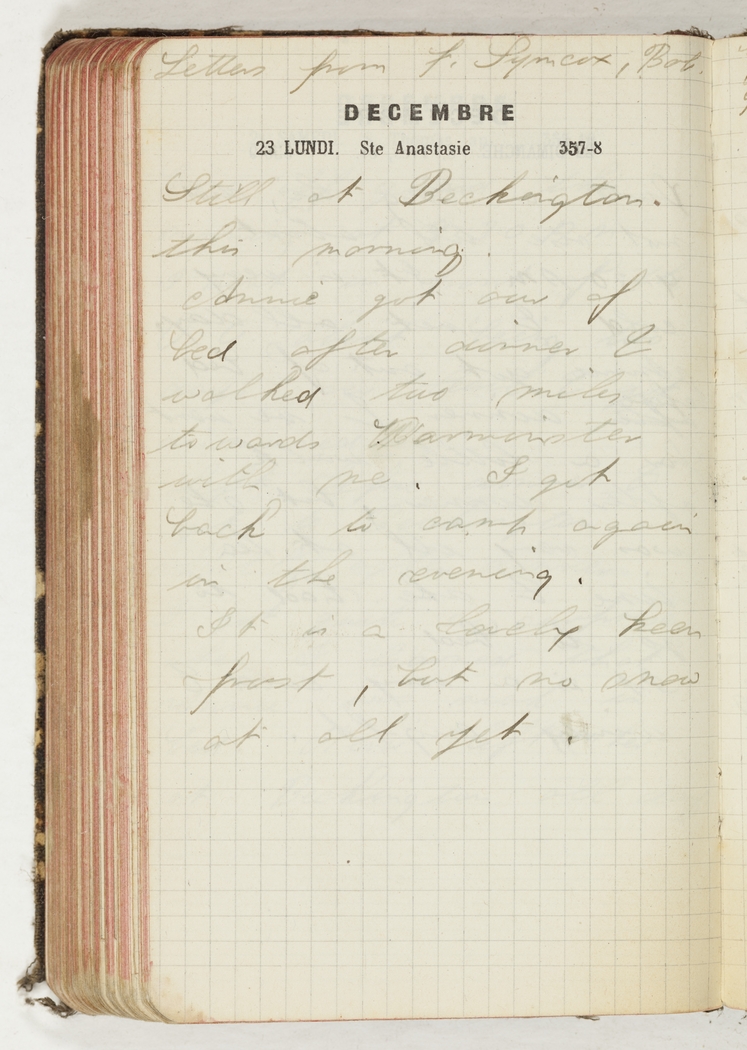 Letters from F. Symcox, Bob.
DECEMBRE
23 LUNDI. Ste Anastasie 357-8
Still at Beckington.
this morning.
Annie got out of
bed after dinner &
walked two miles
towards Warminster
with me. I got
back to camp again
in the evening.
It is a lovely keen
frost, but no snow
at all yet.